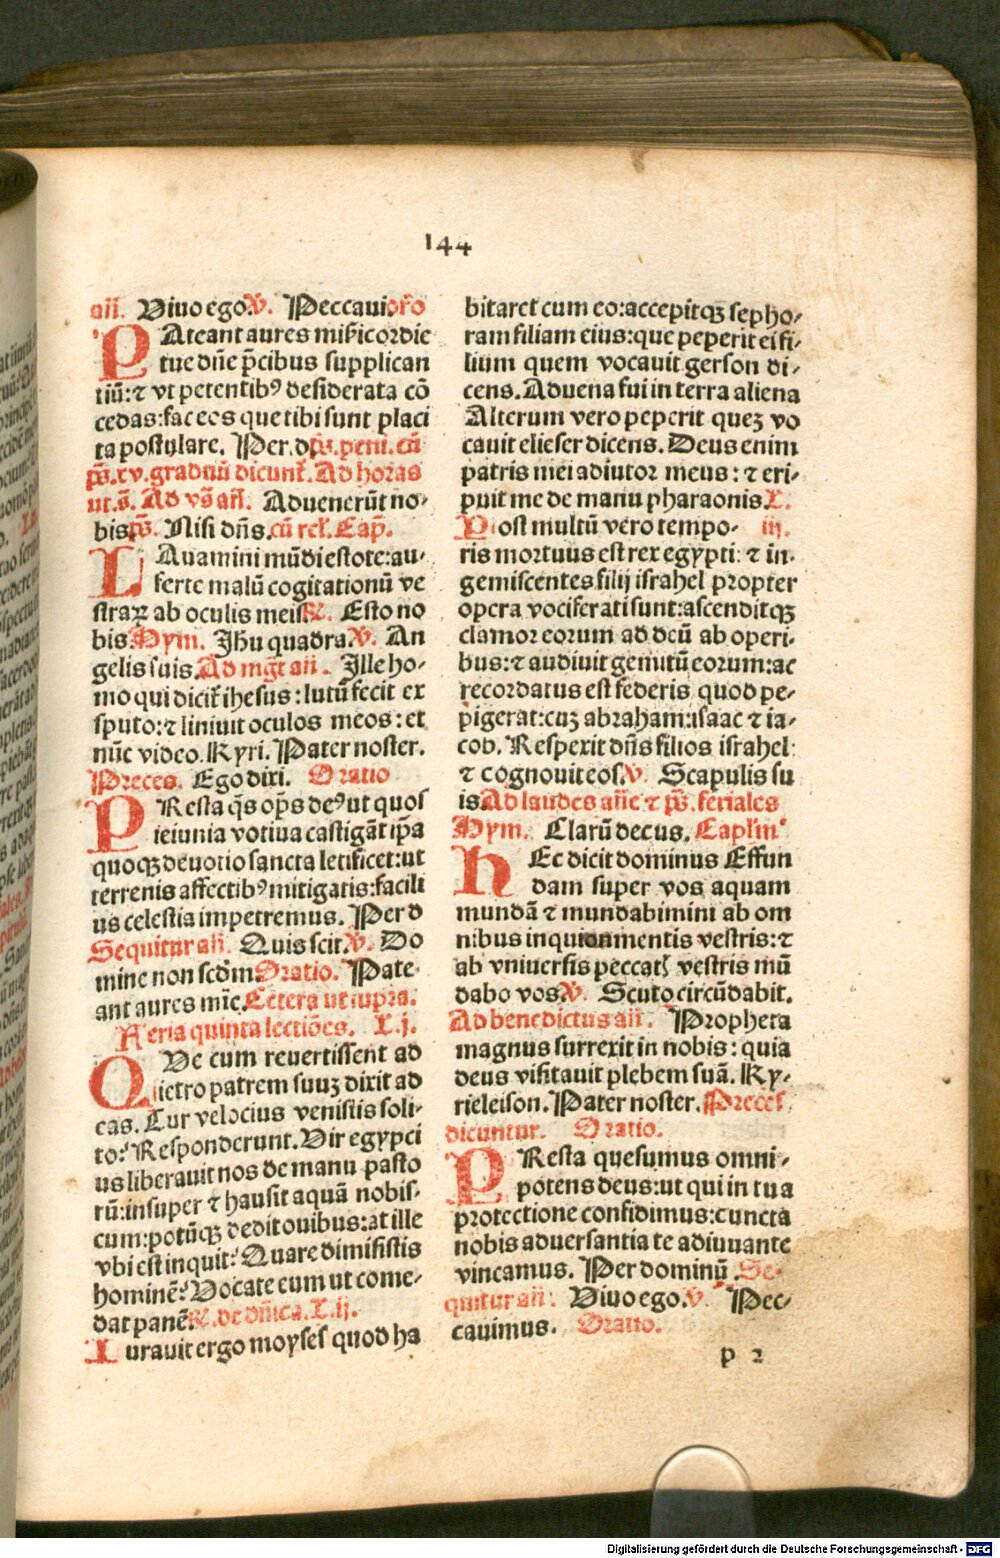 144
añ. Viuo ego. ℣. Peccaui oro
PAteant aures misericordie
tue dñe p̄cibus supplican
tiū: ⁊ vt petentibꝰ desiderata cō
cedas: fac eos que tibi sunt placi
ta postulare. Per. d. ps. peni. cū
ps. xv. graduū dicunt̄. Ad horas
ut. s̄. Ad vs̄ añ. Aduenerūt no-
bis ps. Nisi dñs. cū rel. Cap.
LAuamini mūdi estote: au-
ferte malū cogitationū ve
straꝝ ab oculis meis ℟. Esto no
bis Hym. Jhu quadra ℣. An
gelis suis. Ad mgt añ. Jlle ho-
mo qui dicit̄ ihesus: lutū fecit ex
sputo: ⁊ liniuit oculos meos: et
nūc video. Kyri. Pater noster.
Preces. Ego dixi. Oratio
PResta q̄s op̄s deꝰ ut quos
ieiunia votiua castigāt ip̄a
quoqꝫ deuotio sancta letificet: ut
terrenis affectibꝰ mitigatis: facili
us celestia impetremus. Per d
Sequitur añ. Quis scit ℣. Do
mine non scd̄m Oratio. Pate-
ant aures mīe. Cetera ut supra.
Feria quinta lectiōes. L. j.
QUe cum reuertissent ad
ietro patrem suuꝫ dixit ad
eas. Cur velocius venistis soli-
to? Responderunt. Vir egypci
us liberauit nos de manu pasto
rū: insuper ⁊ hausit aquā nobis-
cum: potūqꝫ dedit ouibus: at ille
vbi est inquit? Quare dimisistis
hominē? Vocate eum ut come-
dat panē. ℟. de dñica. L. ij.
Iurauit ergo moyses quod ha
bitaret cum eo: accepitqꝫ sepho-
ram filiam eius: que peperit ei fi-
lium quem vocauit gerson di-
cens. Aduena fui in terra aliena
Alterum vero peperit queꝫ vo
cauit elieser dicens. Deus enim
patris mei adiutor meus: ⁊ eri-
puit me de manu pharaonis L.
Post multū vero tempo- iij.
ris mortuus est rex egypti: ⁊ in-
gemiscentes filij israhel propter
opera vociferati sunt: ascenditqꝫ
clamor eorum ad deū ab operi-
bus: ⁊ audiuit gemitū eorum: ac
recordatus est federis quod pe-
pigerat: cuꝫ abraham: isaac ⁊ ia-
cob. Respexit dñs filios israhel:
⁊ cognouit eos ℣. Scapulis su
is Ad laudes añe ⁊ ps. feriales
Hym. Clarū decus. Capl'm
HEc dicit dominus Effun
dam super vos aquam
mundā ⁊ mundabimini ab om
nibus inquinamentis vestris: ⁊
ab vniuersis peccatis vestris mū
dabo vos ℣. Scuto circūdabit.
Ad benedictus añ. Propheta
magnus surrexit in nobis: quia
deus visitauit plebem suā. Ky-
rieleison. Pater noster. Preces
dicuntur. Oratio.
PResta quesumus omni-
potens deus: ut qui in tua
protectione confidimus: cuncta
nobis aduersantia te adiuuante
vincamus. Per dominū Se-
quitur añ: Viuo ego. ℣. Pec-
cauimus. Oratio.
p 2
Digitalisierung gefördert durch die Deutsche Forschungsgemeinschaft - DFG